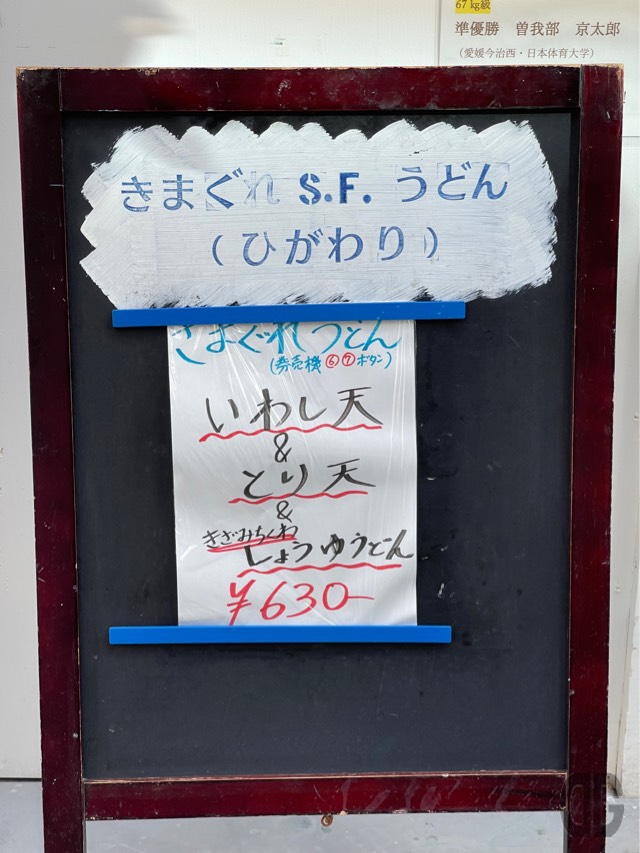 67 kg級
準優勝 曽我部 京太郎
（愛媛今治西・日本体育大学）
きまぐれ S.F. うどん
(ひがわり)
きまぐれうどん
(券売機⑥⑦ボタン)
いわし天
&
とり天
&
きざみちくわ
しょうゆうどん
¥630-